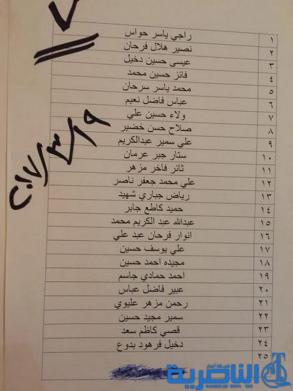 ١ راجي ياسر حواس
٢ نصير هلال فرحان
٣ عيسى حسين دخيل
٤ فائز حسين محمد
٥ محمد ياسر سرحان
٦ عباس فاضل نعيم
٧ ولاء حسين علي
٨ صلاح حسن خضير
٩ علي سمير عبدالكريم
١٠ ستار جبر عرمان
١١ ثائر فاخر مزهر
١٢ علي محمد جعفر ناصر
١٣ رياض جباري شهيد
١٤ حميد كاطع جابر
١٥ عبدالله عبد الكريم محمد
١٦ انوار فرحان عبد علي
١٧ علي يوسف حسين
١٨ مجيده احمد حسين
١٩ احمد حمادي جاسم
٢٠ عبير فاضل عباس
٢١ رحمن مزهر عليوي
٢٢ سمير مجيد حسين
٢٣ قصي كاظم سعد
٢٤ دخيل فرهود بدوع
٢٥
الناصرية